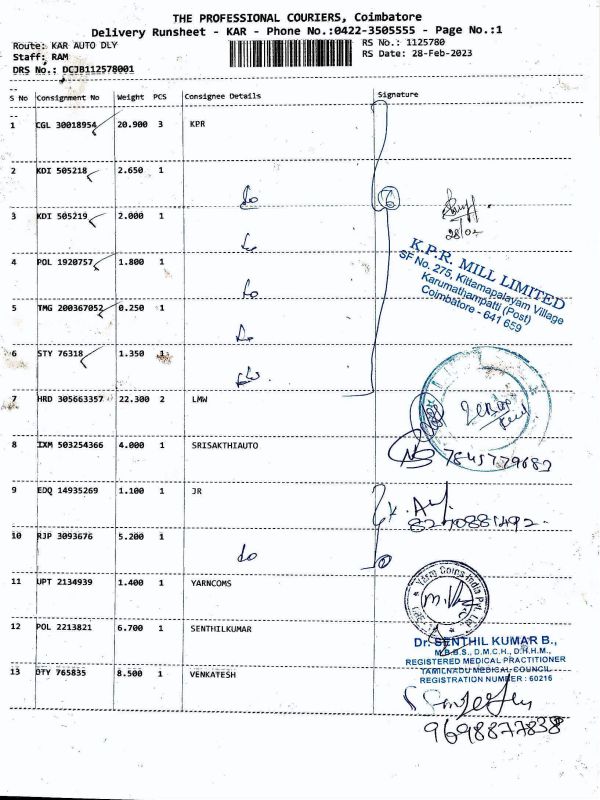 THE PROFESSIONAL COURIERS, Coimbatore
Delivery Runsheet - KAR - Phone No.:0422-3505555 - Page No.:1
Route: KAR AUTO DLY
RS No.: 1125780
Staff: RAM
RS Date: 28-Feb-2023
DRS No.: DCJB112578001
S No Consignment No Weight PCS Consignee Details Signature
1 CGL 30018954 20.900 3 KPR
2 KDI 505218 2.650 1 do
6
3 KDI 505219 2.000 1 do
28/02
4 POL 1920757 1.800 1 do
K.P.R. MILL LIMITED
SF No. 275, Kittamapalayam Village
Karumathampatti (Post)
Coimbatore - 641 659
5 TMG 200367052 0.250 1 do
6 STY 76318 1.350 1 do
7 HRD 305663357 22.300 2 LMW
8 IXM 503254366 4.000 1 SRISAKTHIAUTO
9 EDQ 14935269 1.100 1 JR
10 RJP 3093676 5.200 1 do
11 UPT 2134939 1.400 1 YARNCOMS
Yarn Coms India Pvt. Ltd.
12 POL 2213821 6.700 1 SENTHILKUMAR
Dr. SENTHIL KUMAR B.,
M.B.B.S., D.M.C.H., D.R.H.M.,
REGISTERED MEDICAL PRACTITIONER
TAMILNADU MEDICAL COUNCIL
REGISTRATION NUMBER : 60216
13 DTY 765835 8.500 1 VENKATESH
9698877838